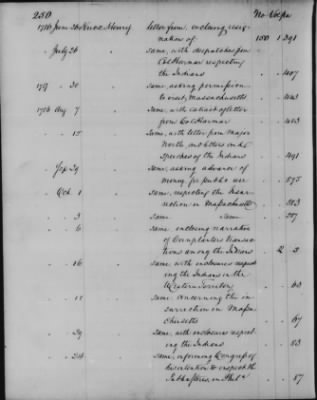 250 No Vol pa
1786 June 26 Knox Henry letter from, enclosing resig-
nation of 150 1 391
" July 26 " same, with despatches from
Col Harmar respecting
the Indians " " 407
1787 " 30 " same, asking permission
to visit, Massachusetts " " 443
1786 Aug 7 " same, with extract of letter
from Col Harmar " " 453
" 15 " same, with letter from Major
North, and others and
Speeches of the Indians " " 491
" 29 " same, asking advance of
money for public use " " 575
" Oct 1 " same, respecting the Insur-
rection in Massachusetts " "
" 3 " same same " "
" 6 " same enclosing narration
of Cornplanters transac-
tions among the Indians " 2 3
" 16 " same with enclosures respect
ing the Indians in the
Western Territory " " 63
" " same concerning the in
surrection in Massa
chusetts " " 67
" " same, with enclosures respec
ting the Indians " " 83
" " same, informing Congress of
his intention to inspect the
in Phila " " 87